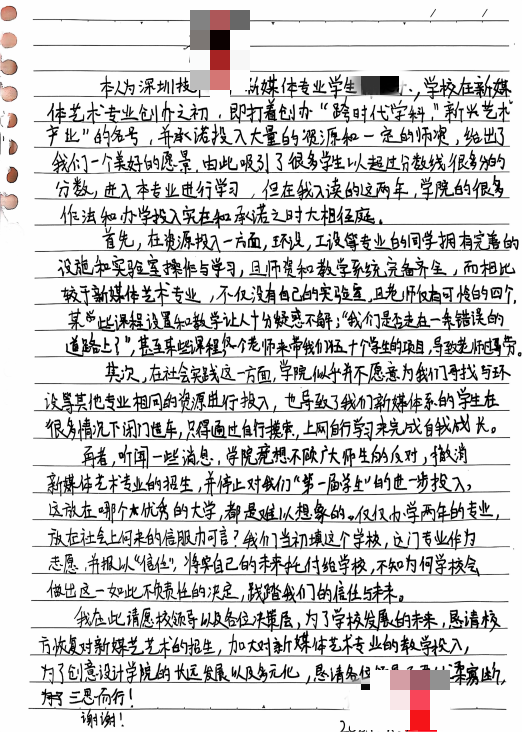 本人为深圳技 新媒体专业学生 ，学校在新媒
体艺术专业创办之初，即打着创办“跨时代学科，”新兴艺术
产业”的名号，并承诺投入大量的资源和一定的师资，给出了
我们一个美好的愿景，由此吸引了很多学生以超过分数线很多的
分数，进入本专业进行学习，但在我入读的这两年，学院的很多
作法和办学投入实在和承诺之时大相径庭。
首先，在资源投入一方面，环设，工设等专业的同学拥有完善的
设施和实验室操作与学习，且师资和教学系统完备齐全，而相比
较于新媒体艺术专业，不仅没有自己的实验室，且老师仅有可怜的四个，
某些课程设置和教学让人十分疑惑不解；“我们是否走在一条错误的
道路上了”，甚至某些课程仅个老师来带我们五十个学生的项目，导致老师过劳。
其次，在社会实践这一方面，学院似乎并不愿意为我们寻找与环
设等其他专业相同的资源进行投入，也导致了我们新媒体系的学生在
很多情况下闭门造车，只得通过自行摸索，上网自行学习来完成自我成长。
再者，听闻一些消息，学院竟想不顾广大师生的反对，撤消
新媒体艺术专业的招生，并停止对我们“第一届学生”的进一步投入，
这放在哪个优秀的大学，都是难以想象的。仅仅办学两年的专业，
放在社会上何来的信服力可言？我们当初填这个学校，这门专业作为
志愿，并报以“信任”，将我自己的未来托付给学校，不知为何学校会
做出这一如此不负责任的决定，践踏我们的信任与未来。
我在此请愿校领导以及各位决策层，为了学校发展的未来，恳请校
方恢复对新媒艺艺术的招生，加大对新媒体艺术专业的教学投入，
为了创意设计学院的长远发展以及多元化，恳请各
三思而行！
谢谢！